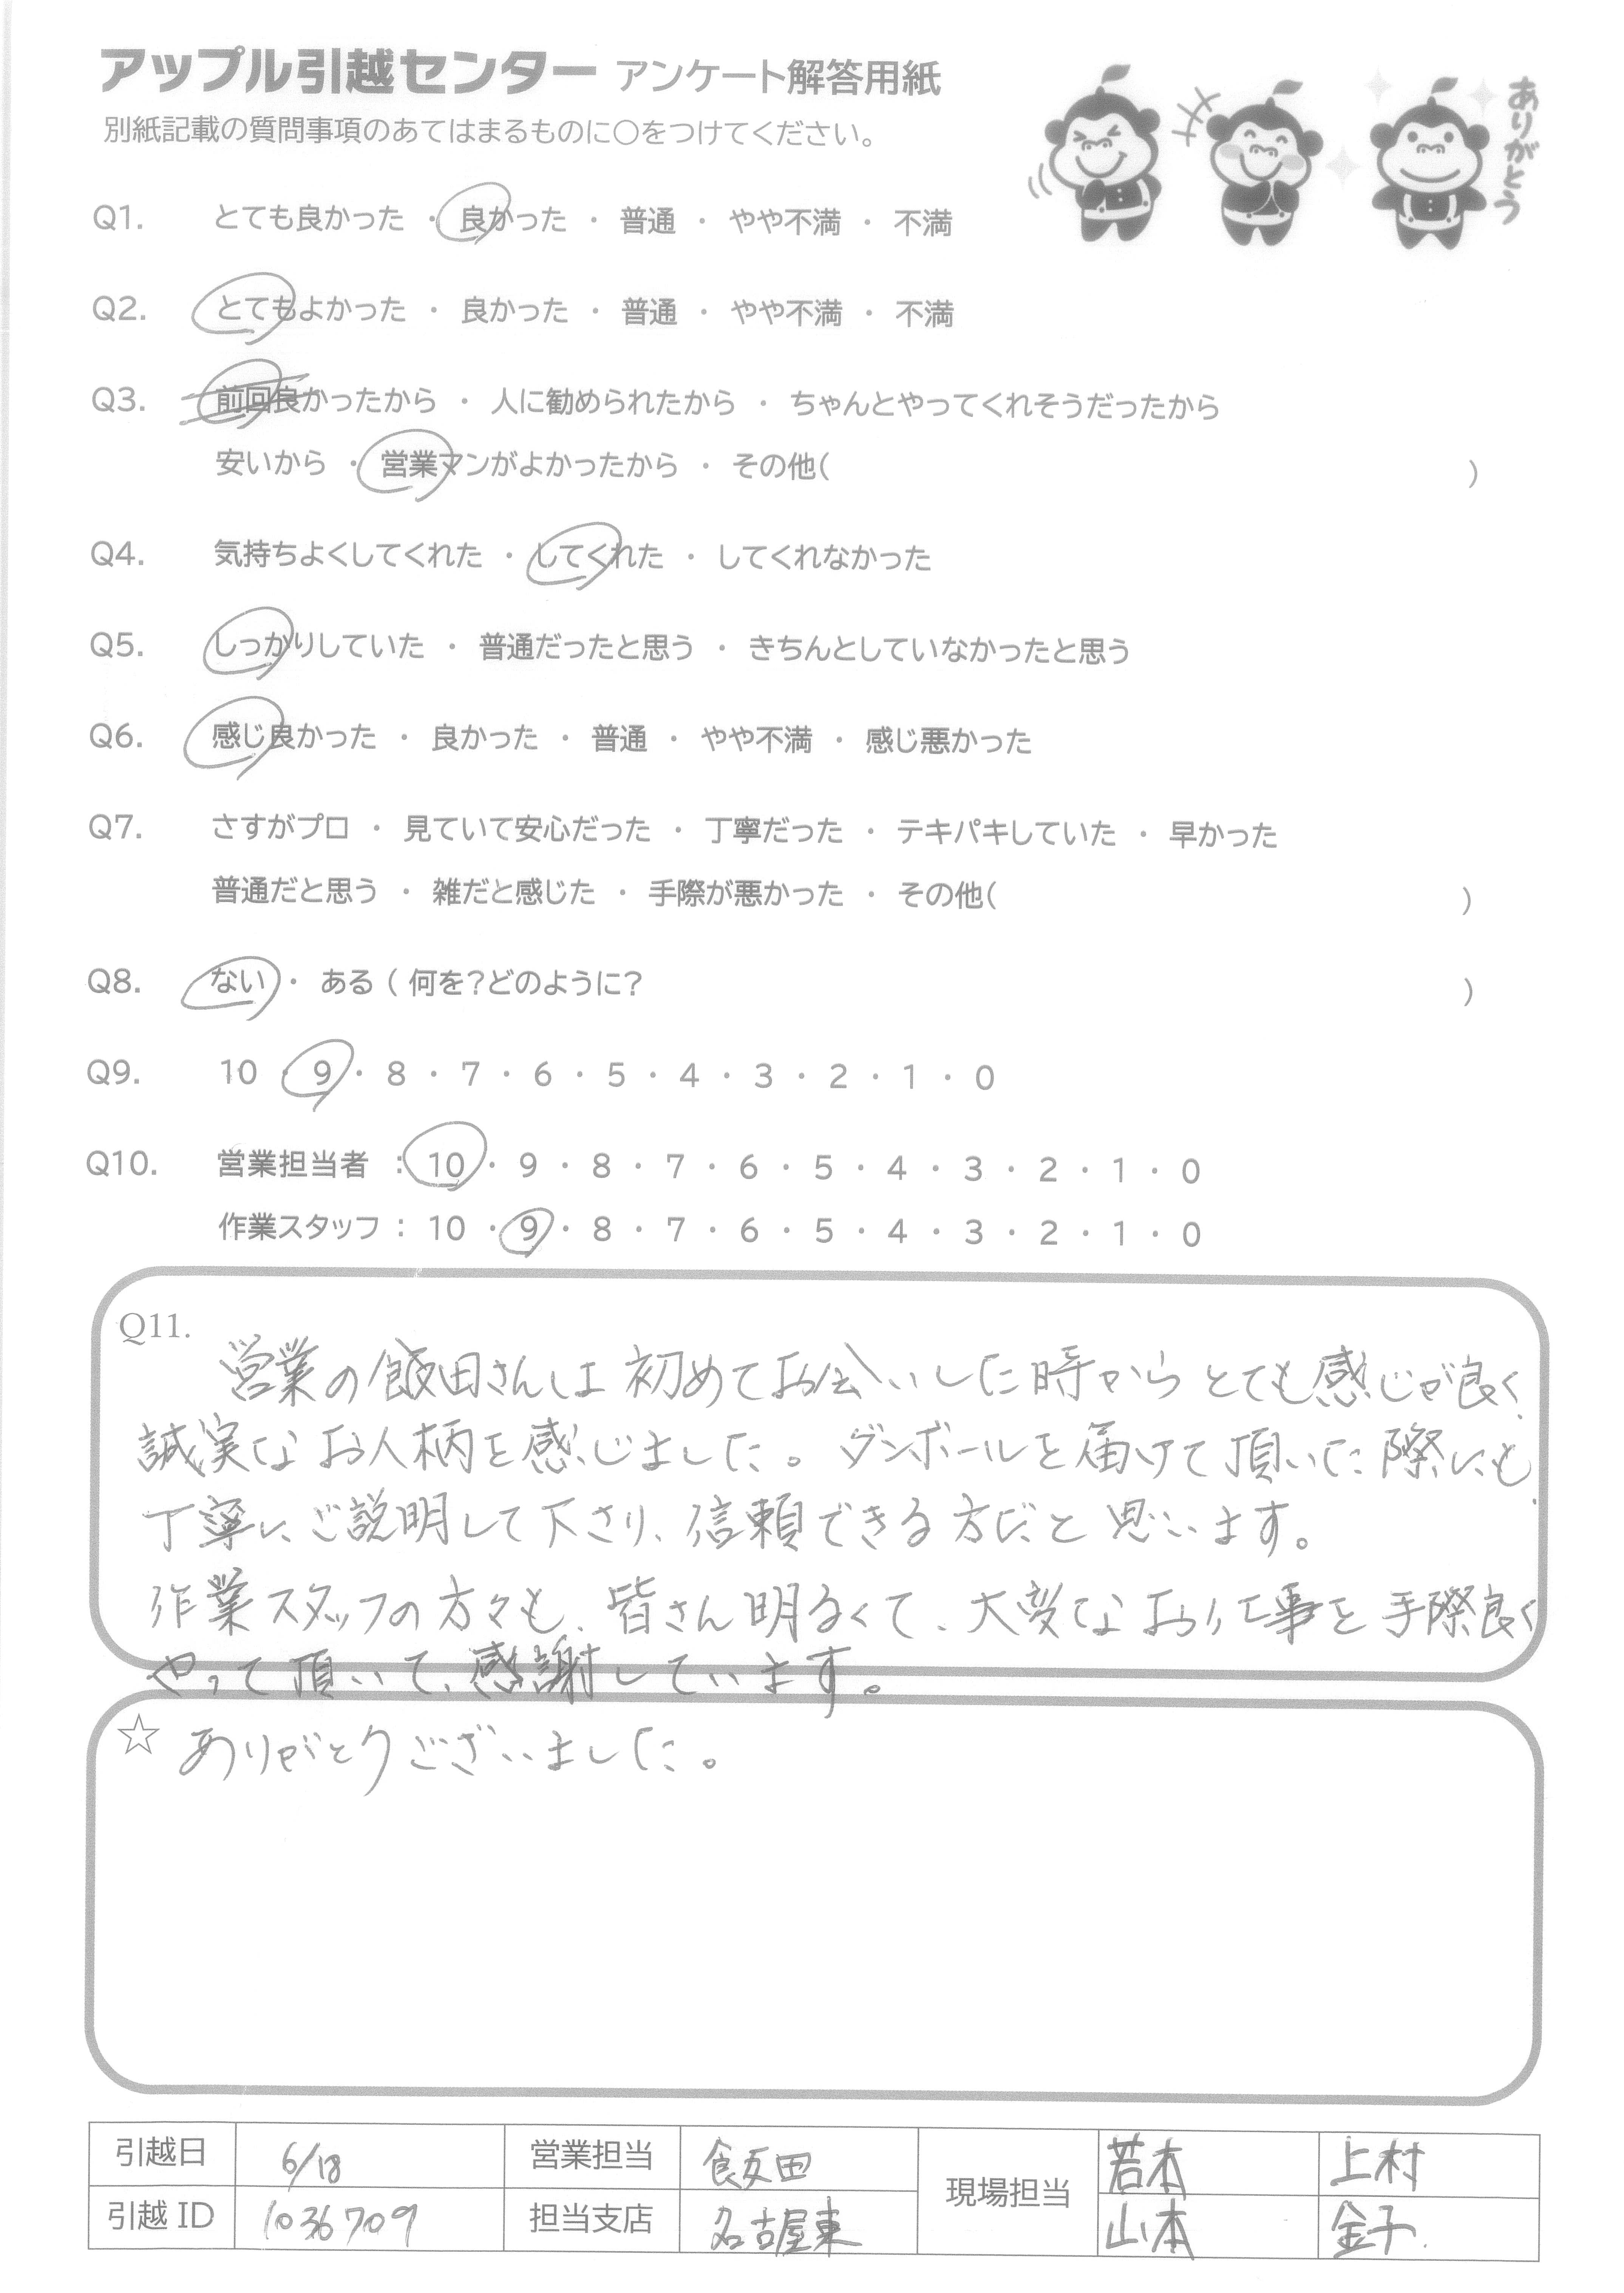 アップル引越センター アンケート解答用紙
ありがとう
別紙記載の質問事項のあてはまるものに○をつけてください。
Q1. とても良かった ・ 良かった ・ 普通 ・ やや不満 ・ 不満
Q2. とてもよかった ・ 良かった ・ 普通 ・ やや不満 ・ 不満
Q3. 前回良かったから ・ 人に勧められたから ・ ちゃんとやってくれそうだったから
安いから ・ 営業マンがよかったから ・ その他( )
Q4. 気持ちよくしてくれた ・ してくれた ・ してくれなかった
Q5. しっかりしていた ・ 普通だったと思う ・ きちんとしていなかったと思う
Q6. 感じ良かった ・ 良かった ・ 普通 ・ やや不満 ・ 感じ悪かった
Q7. さすがプロ ・ 見ていて安心だった ・ 丁寧だった ・ テキパキしていた ・ 早かった
普通だと思う ・ 雑だと感じた ・ 手際が悪かった ・ その他( )
Q8. ない ・ ある ( 何を?どのように? )
Q9. 10 ・ 9 ・ 8 ・ 7 ・ 6 ・ 5 ・ 4 ・ 3 ・ 2 ・ 1 ・ 0
Q10. 営業担当者 : 10 ・ 9 ・ 8 ・ 7 ・ 6 ・ 5 ・ 4 ・ 3 ・ 2 ・ 1 ・ 0
作業スタッフ : 10 ・ 9 ・ 8 ・ 7 ・ 6 ・ 5 ・ 4 ・ 3 ・ 2 ・ 1 ・ 0
Q11.
営業の飯田さんは初めてお会いした時からとても感じが良く、
誠実なお人柄を感じました。ダンボールを届けて頂いた際にも、
丁寧にご説明して下さり、信頼できる方だと思います。
作業スタッフの方々も、皆さん明るくて、大変なお仕事を手際良く
やって頂いて、感謝しています。
☆ ありがとうございました。
引越日 6/18 営業担当 飯田 現場担当 若本 上村
引越 ID 1036709 担当支店 名古屋東 山本 金子